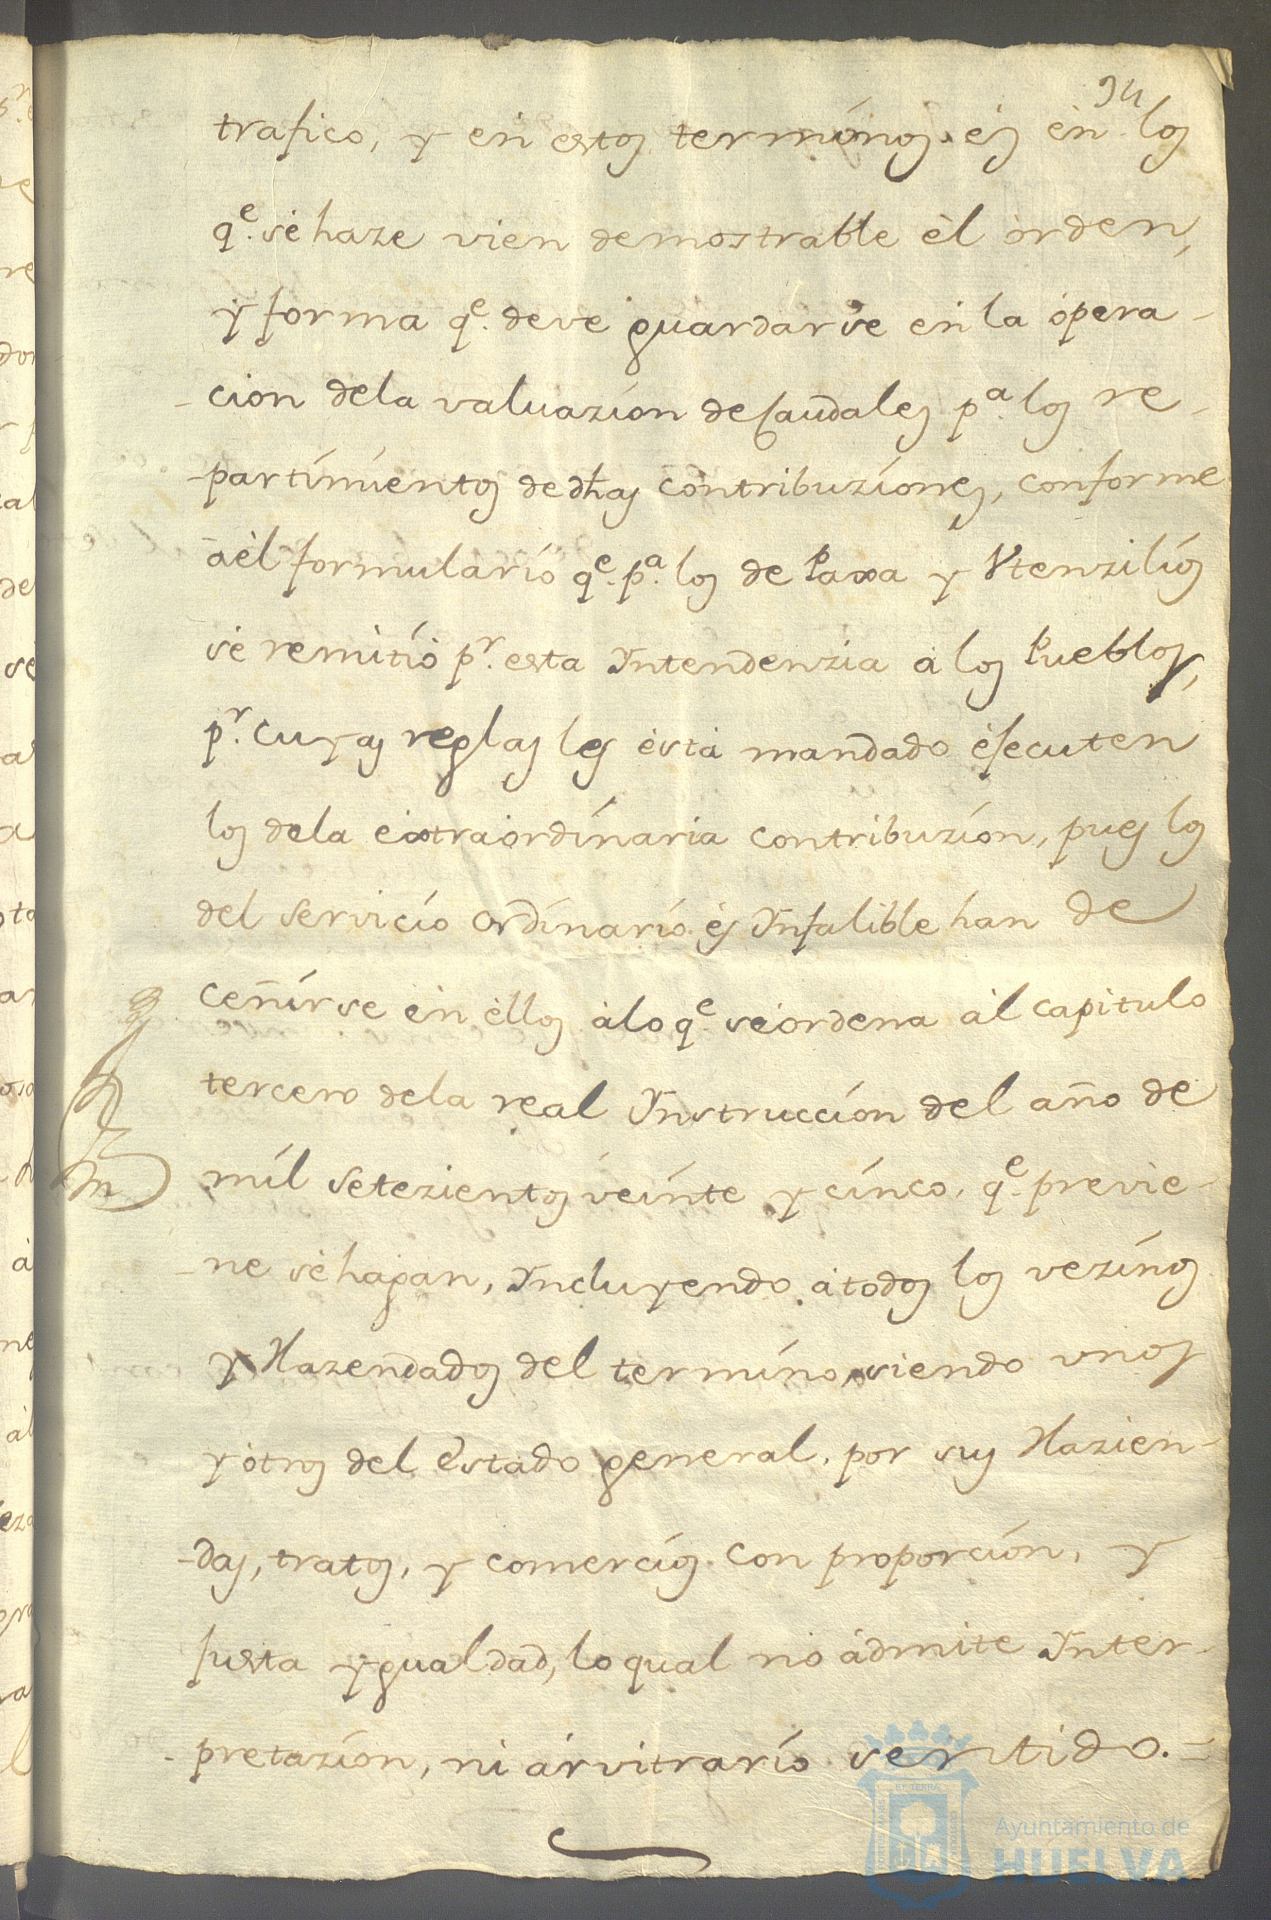 94
trafico, y en estos terminos es en los
qe. se haze vien demostrable èl òrden,
y forma qe. deve guardarse en la òpera-
-cion dela valuazion de Caudales pa. los re-
-partimientos de dhas contribuziones, conforme
aèl formulario qe. pa. los de Paxa y Vtenzilios
se remitiò pr. esta Yntendenzia a los Pueblos,
pr. cuyas reglas les està mandado èjecuten
los dela extraordinaria contribuzion, pues los
del Servicio Ordinario es Ynfalible han de
ceñirse en èllos àlo qe. se òrdena àl capitulo
tercero dela real Ynstruccion del año de
mil setezientos veinte y cinco, qe. previe-
-ne se hagan, Yncluyendo à todos los vezinos
y Hazendados del termino, siendo vnos
y òtros del Estado general, por sus Hazien-
-das, tratos, y comercios con proporcion, y
justa ygualdad, lo qual no àdmite Ynter-
-pretazion, ni àrvitrario sentido.=
Ayuntamiento de
HUELVA